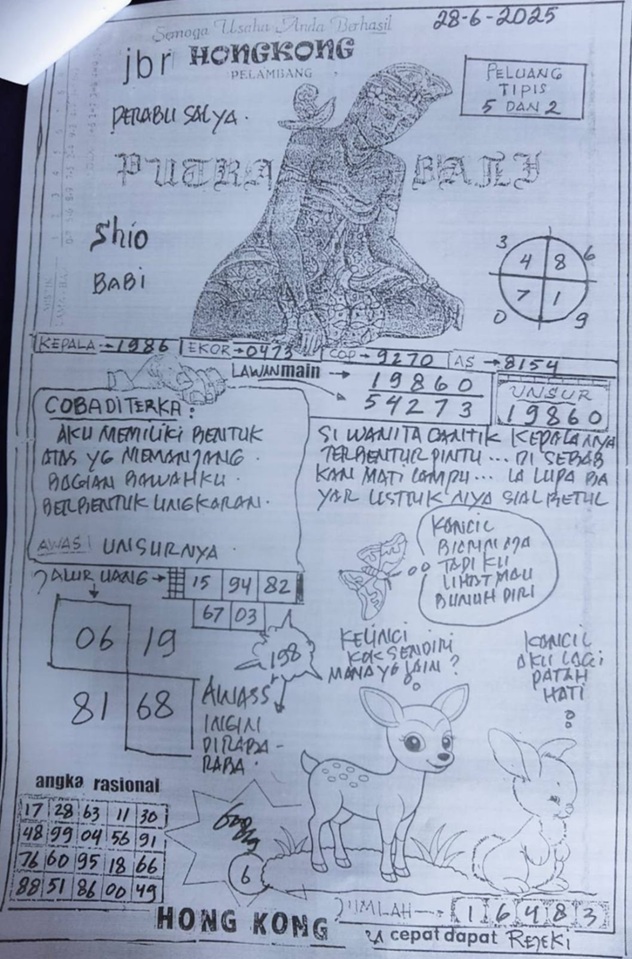 Semoga Usaha Anda Berhasil
28-6-2025
jbr HONGKONG
PELAMBANG
PELUANG
TIPIS
5 DAN 2
PERABU SALYA.
PUTRA BALI
Shio
BABI
3 6
4 8
7 1
0 9
KEPALA → 1986 EKOR → 0473 COP → 9270 AS → 8154
LAWAN main → 19860
54273
UNSUR
19860
COBA DITERKA:
AKU MEMILIKI BENTUK
ATAS YG MEMANJANG.
BAGIAN BAWAHKU
BERBENTUK LINGKARAN.
AWAS! UNSURNYA.
SI WANITA CANTIK KEPALANYA
TERBENTUR PINTU... DI SEBAB
KAN MATI LAMPU... IA LUPA BA
YAR LISTRIK NYA SIAL BETUL
KANCIL
TADI KU
LIHAT MAU
BUNUH DIRI
JALUR UANG → 15 94 82
67 03
06 19
81 68
198
AWASS
INGIN
DIRABA-
RABA.
KELINCI
KOK SENDIRI
MANA YG LAIN?
KANCIL
AKU LAGI
PATAH
HATI
angka rasional
17 28 63 11 30
48 99 04 56 91
76 60 95 18 66
88 51 86 00 49
6
JUMLAH → 1 6 4 8 3
HONG KONG
cepat dapat REJEKI